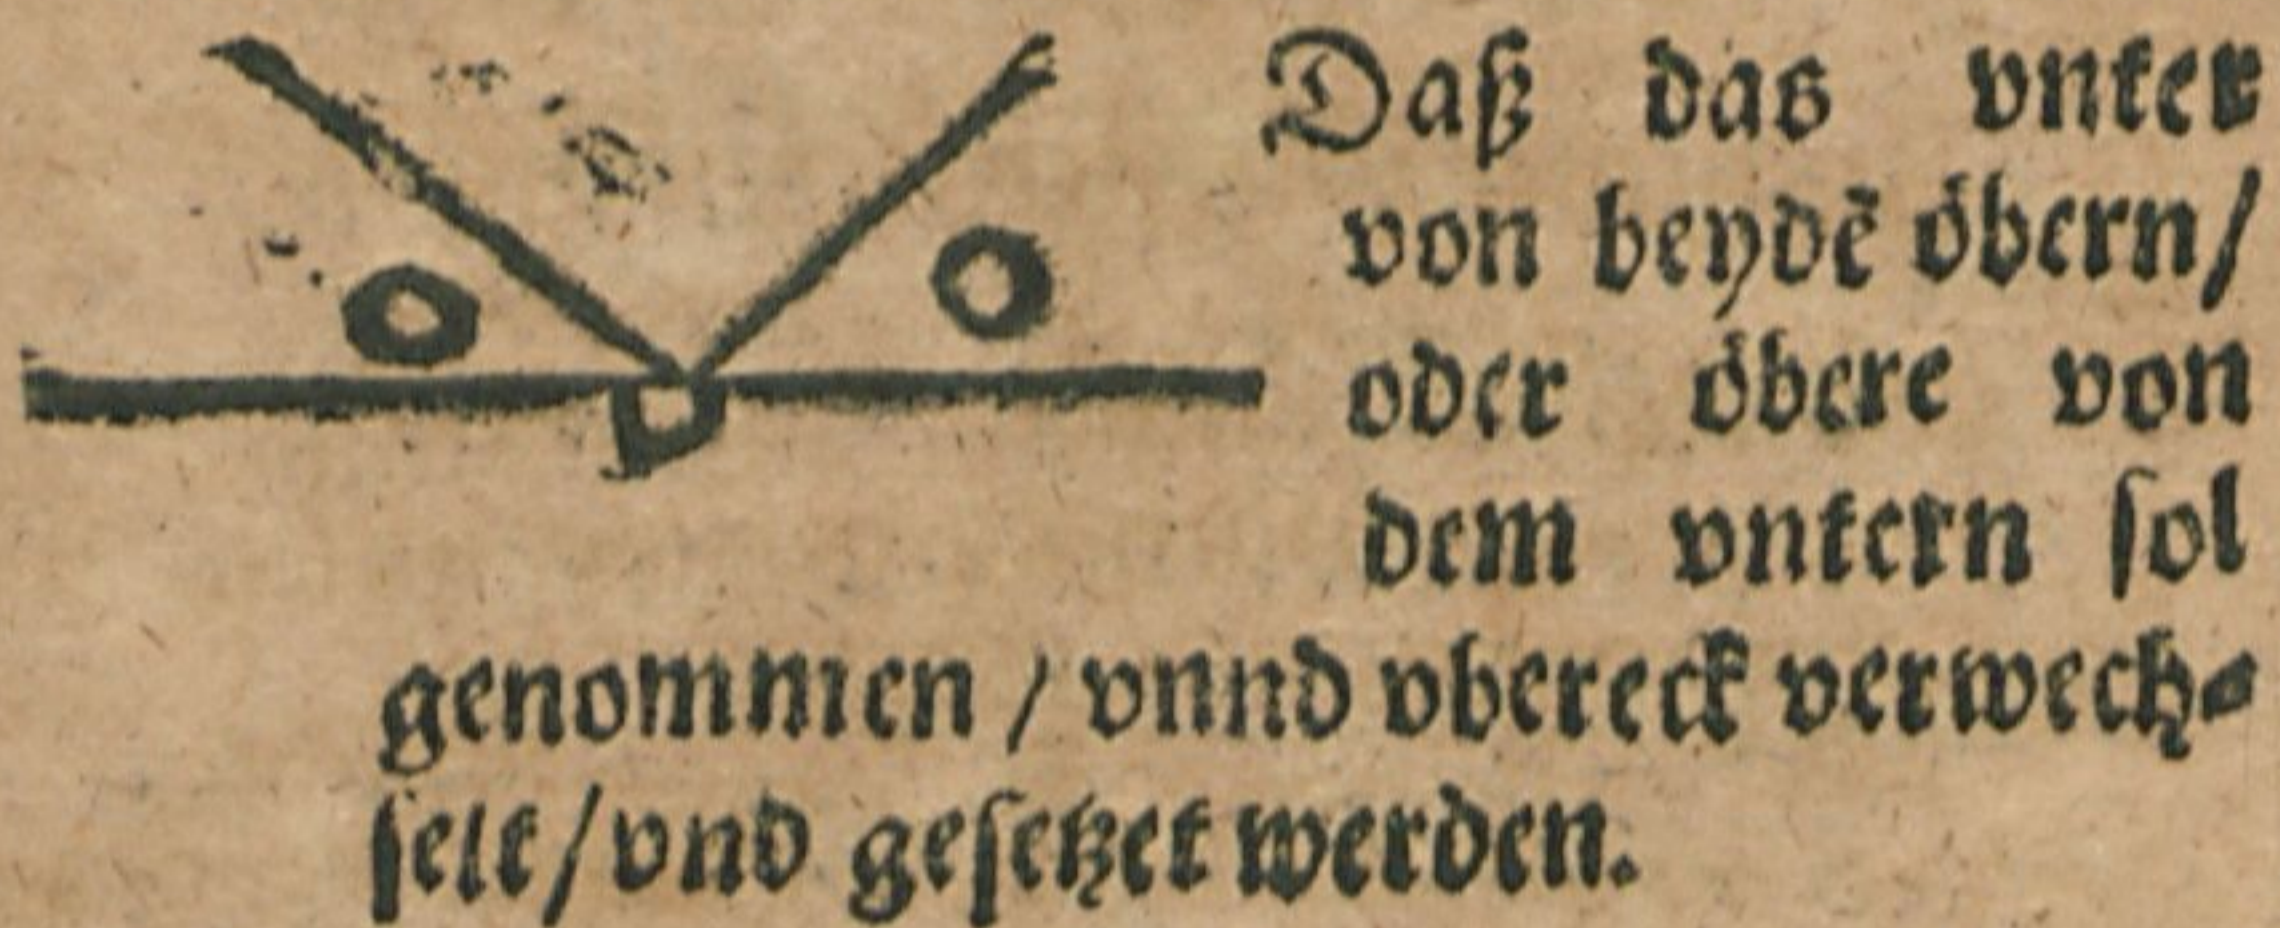 Daß das vnter
von beydē öbern/
oder öbere von
dem vntern ſol
genommen / vnnd vbereck verwech⸗
ſelt/vnd geſetzet werden.